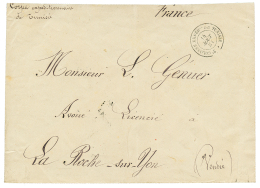 Corps expéditionnaire
de Tunisie
France
Monsieur L. Genuer
Avoué Licencié
à
La Roche-sur-Yon
(Vendée)